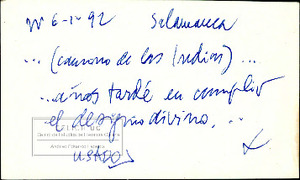 6-IV-92 Salamanca
... (camino de las Indias) ...
... años tardé en cumplir
el designio divino. ..
USADO